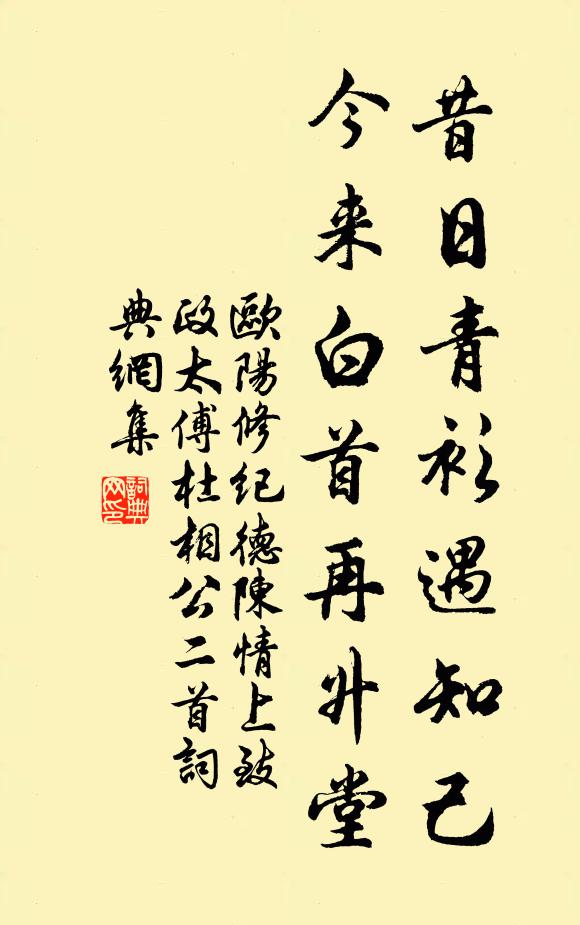 昔日青衫遇知己
今来白首再升堂
歐陽修紀德陳情上致
政太傅杜相公二首詞
典網集
詞典網印